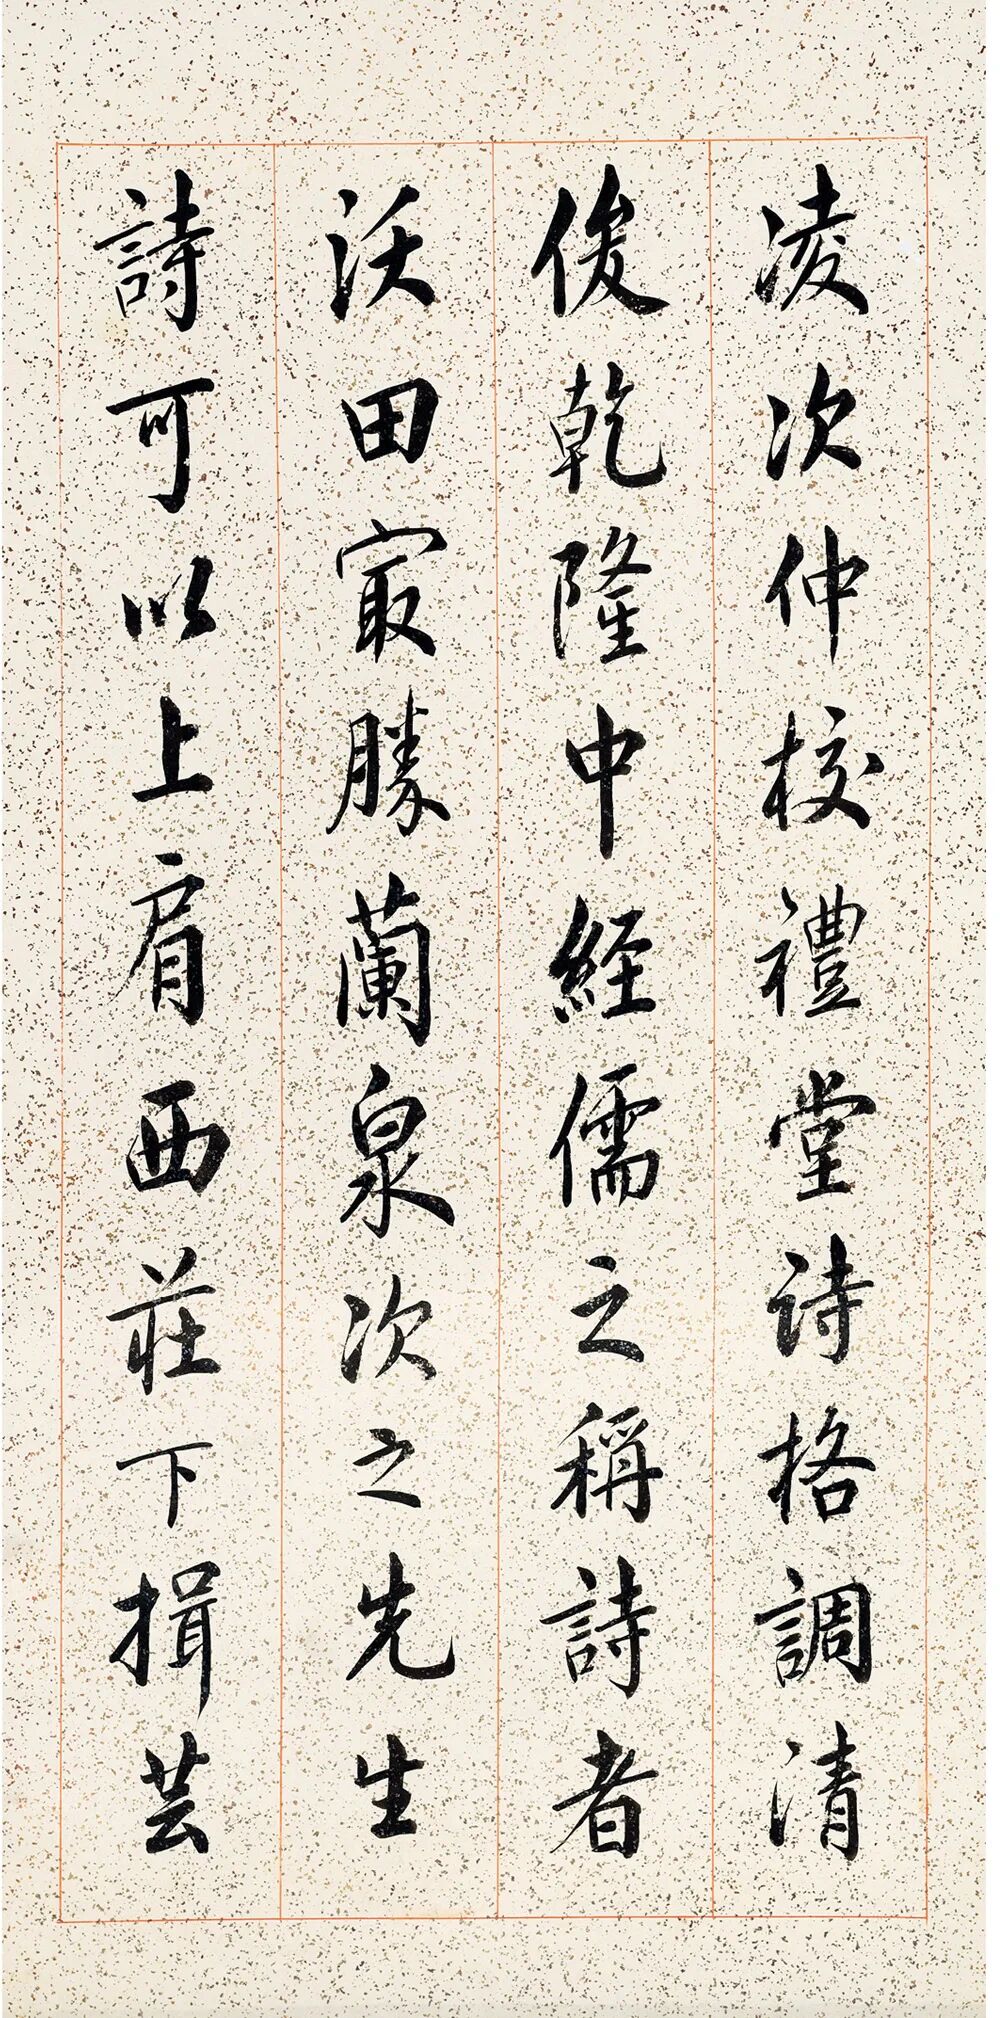 凌次仲校禮堂诗格調清
俊乾隆中経儒之稱詩者
沃田冣勝蘭泉次之先生
詩可以上肩西莊下揖芸